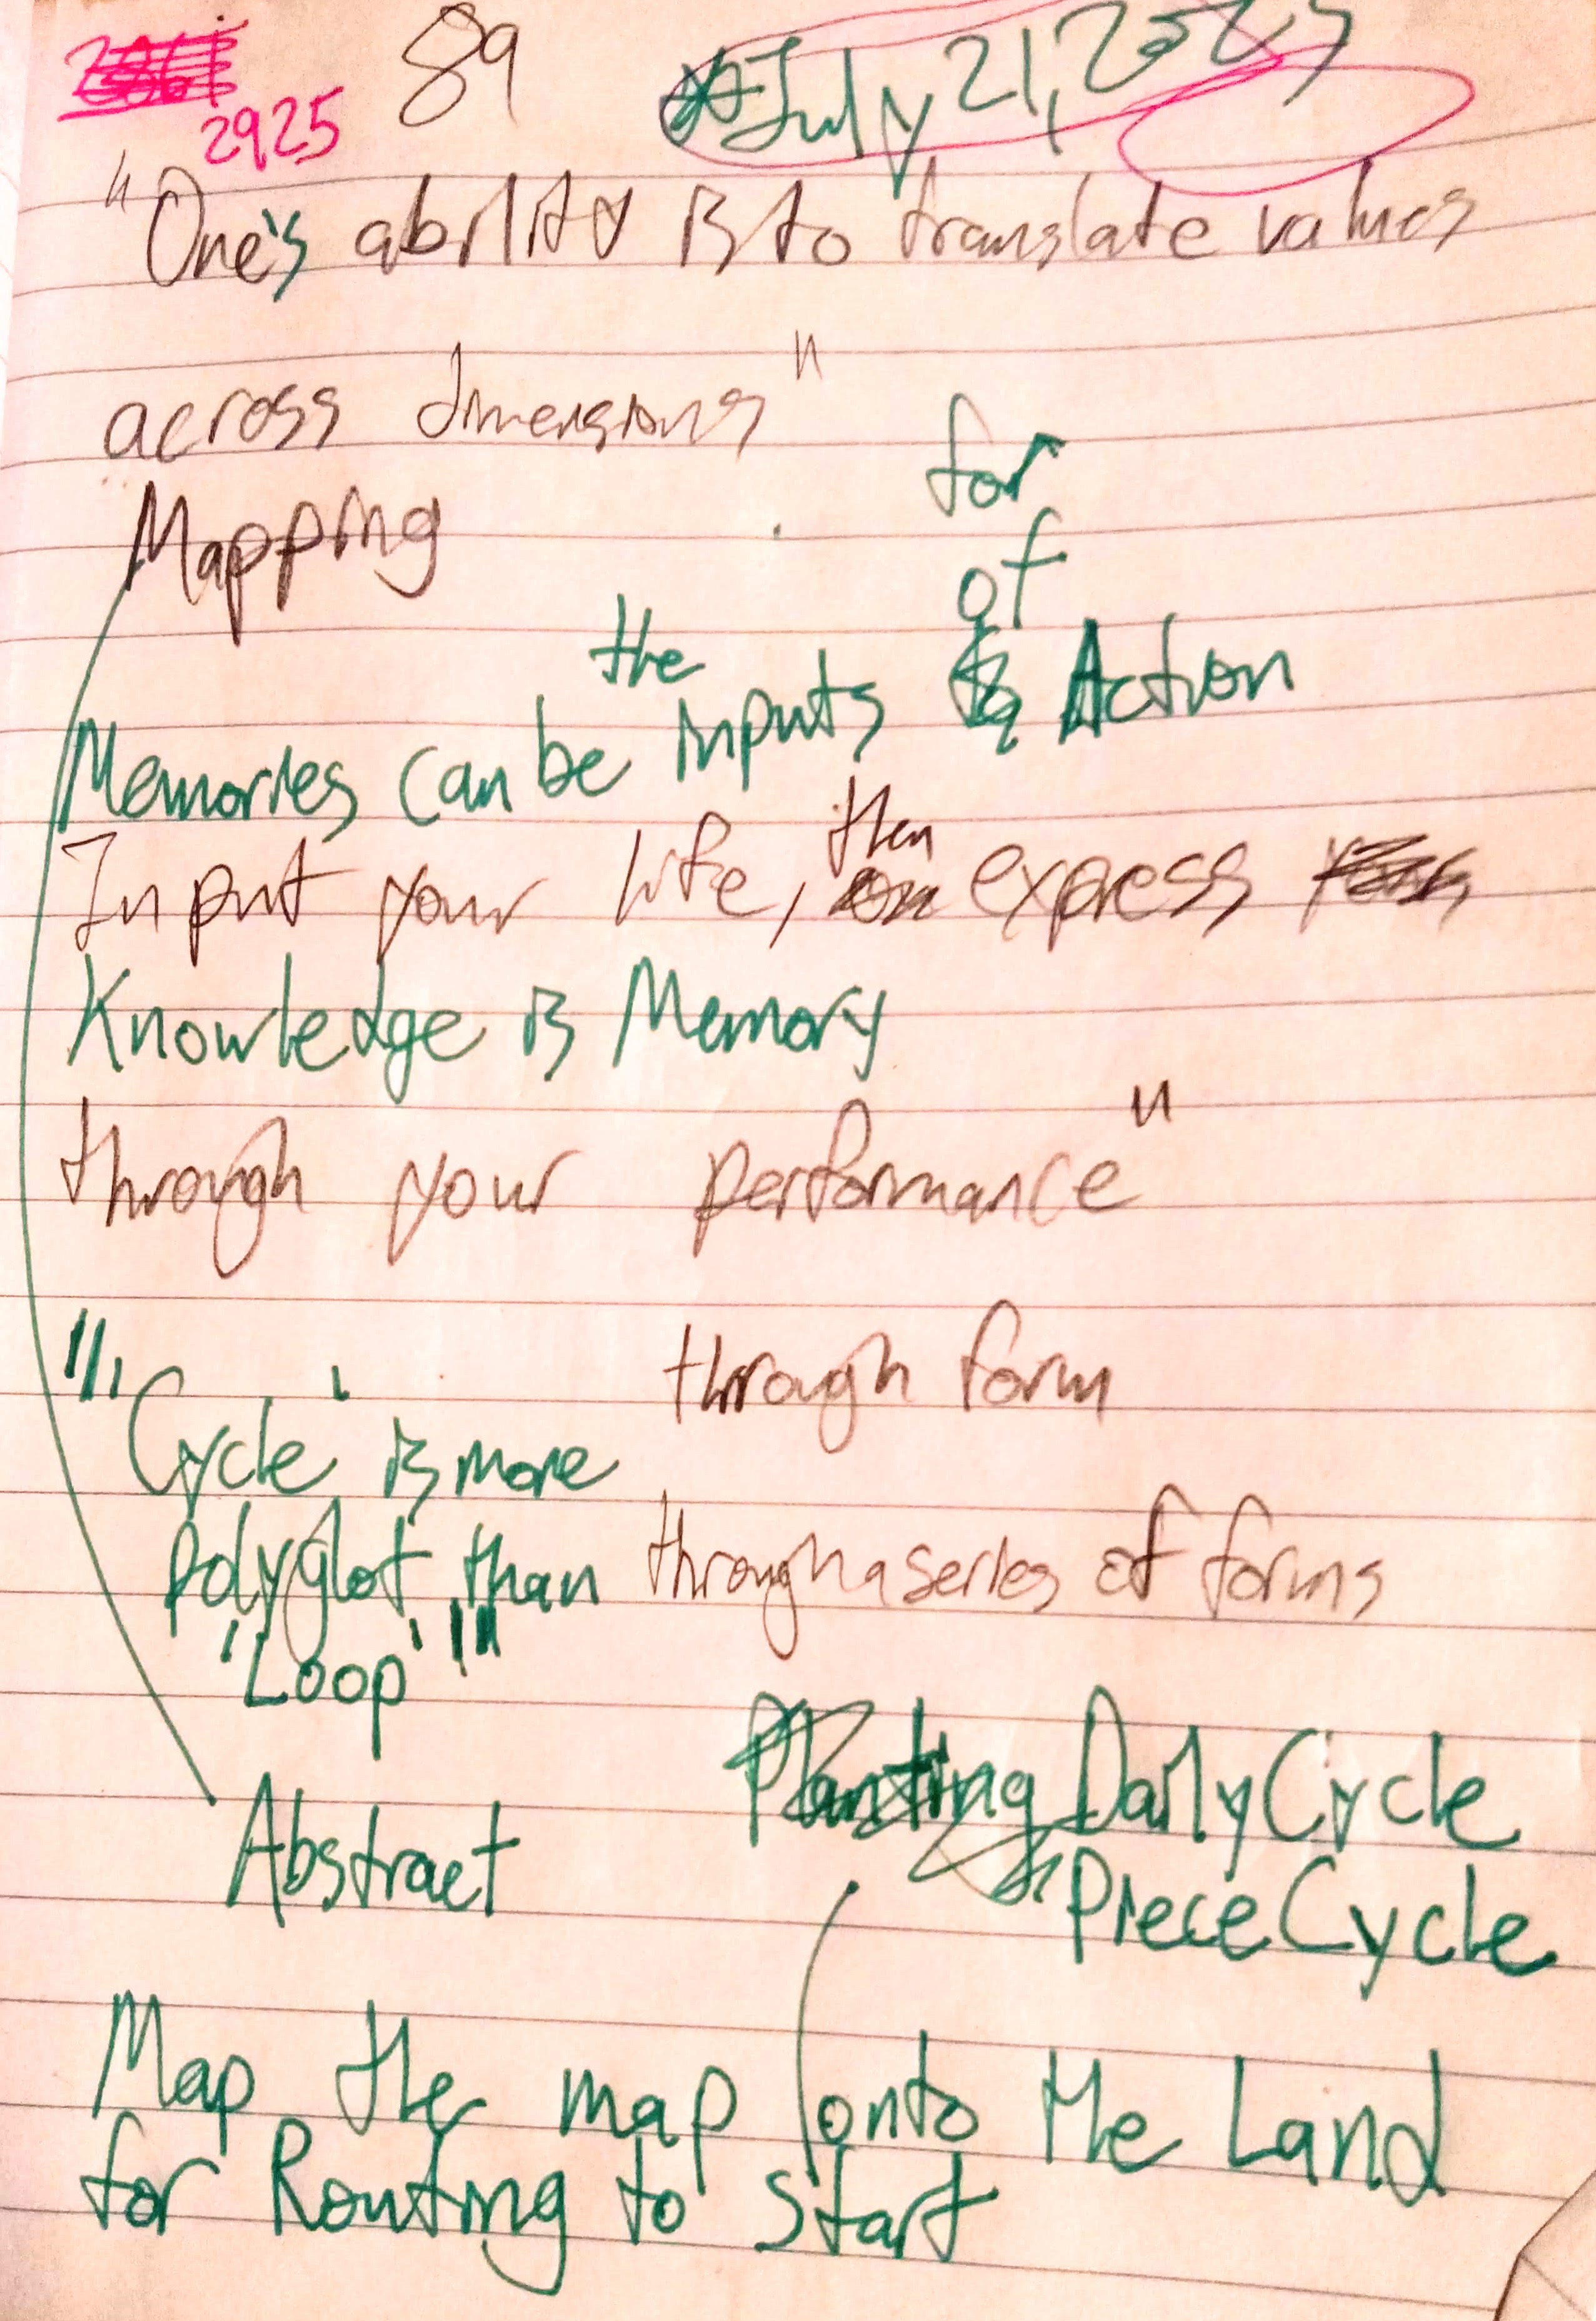 2925
89
July 21, 2025
"One's ability is to translate values
across dimensions"
Mapping
for
of
the
Memories can be inputs Action
then
Input your life, express
Knowledge is Memory
through your performance"
through form
"'Cycle' is more
polyglot than
'Loop'"
through a series of forms
Planting Daily Cycle
Piece Cycle
Abstract
Map the map onto the Land
for Routing to Start